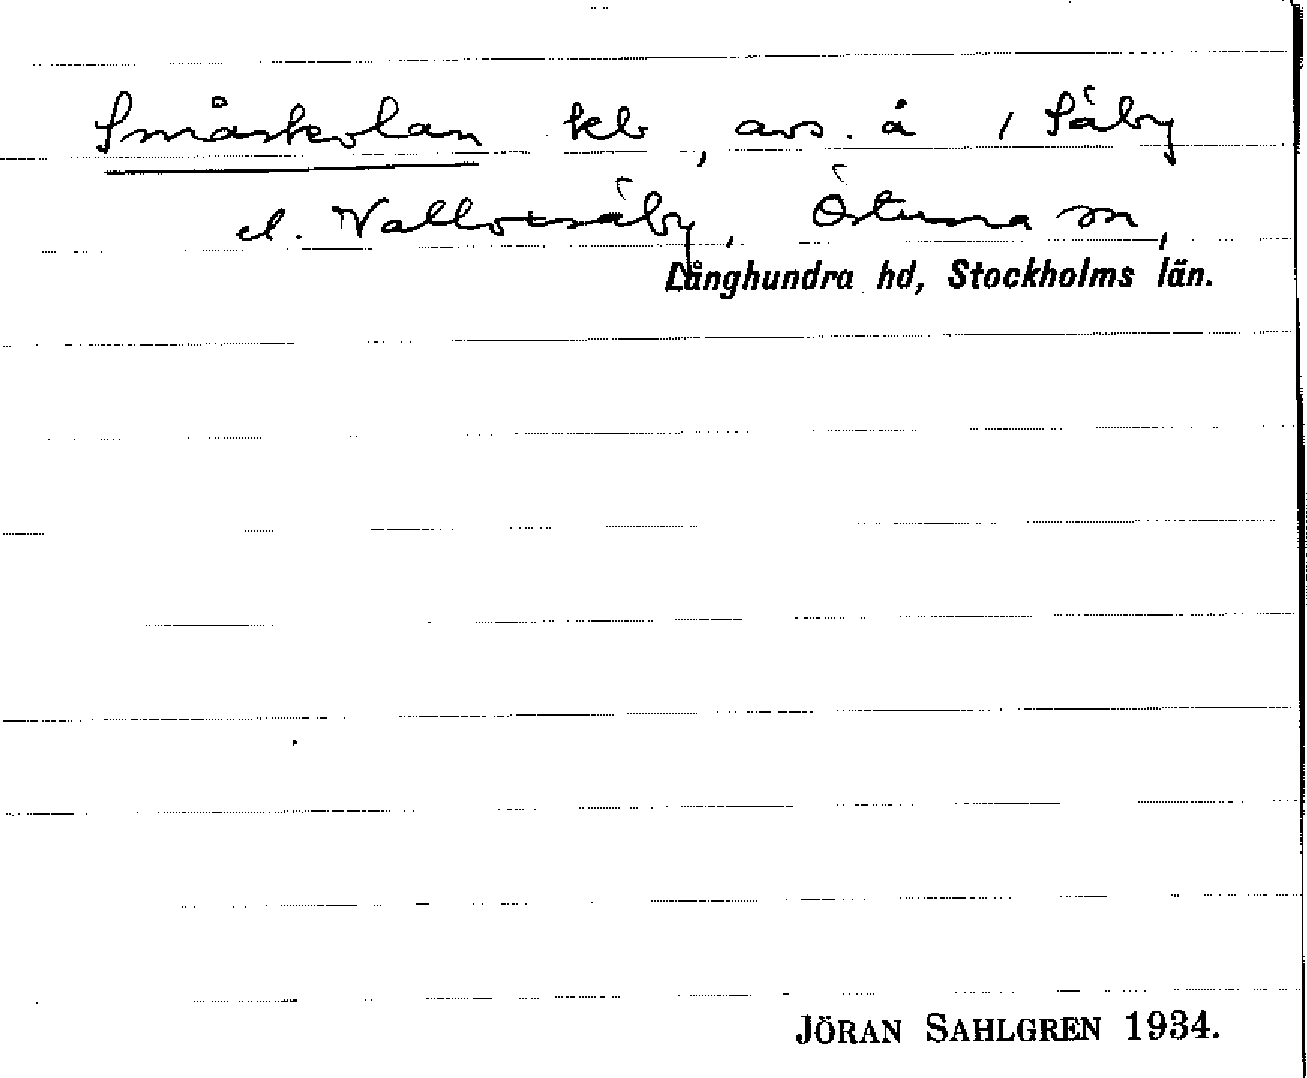 Småskolan kb, avs. å, Säby
el. Valloxsäby, Östuna sn,
Långhundra hd, Stockholms län.
JÖRAN SAHLGREN 1934.